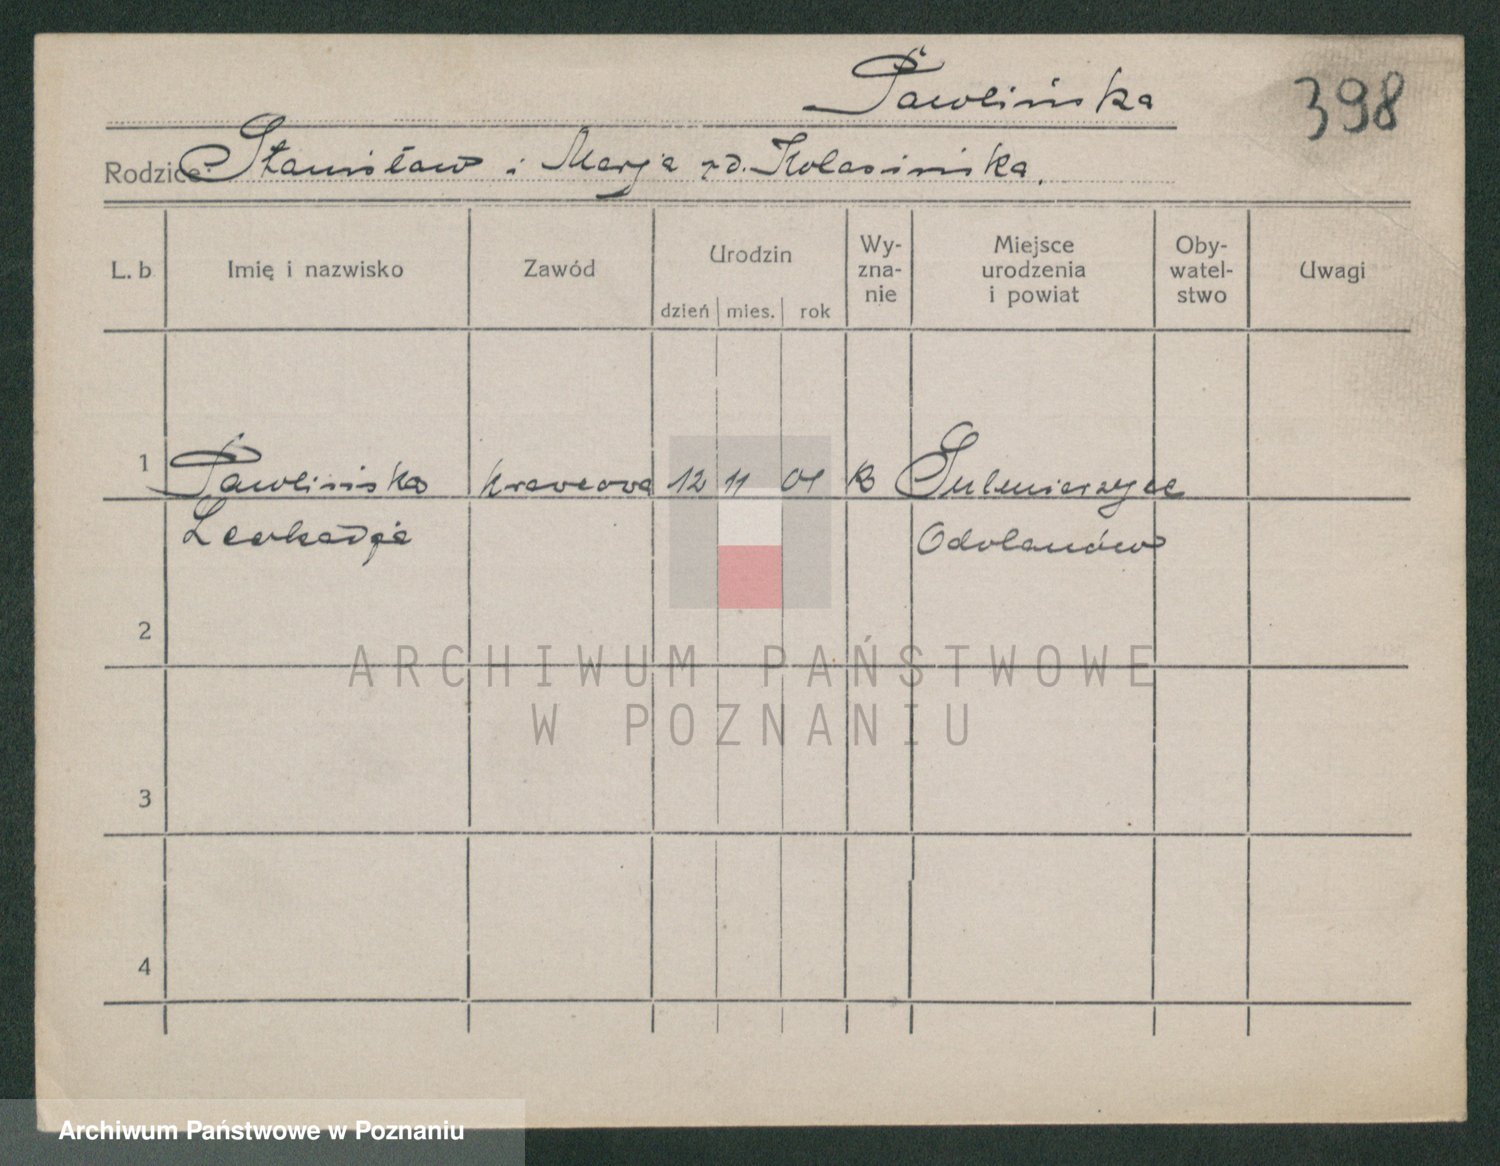 Pawlińska
398
Rodzice: Stanisław i Marja zd. Kolasińska.
L. b Imię i nazwisko Zawód Urodzin dzień mies. rok Wy-zna-nie Miejsce urodzenia i powiat Oby-watel-stwo Uwagi
1 Pawlińska krawcowa 12 11 01 k Sulmierzyce
Leokadja Odolanów
2
ARCHIWUM PAŃSTWOWE
W POZNANIU
3
4
Archiwum Państwowe w Poznaniu